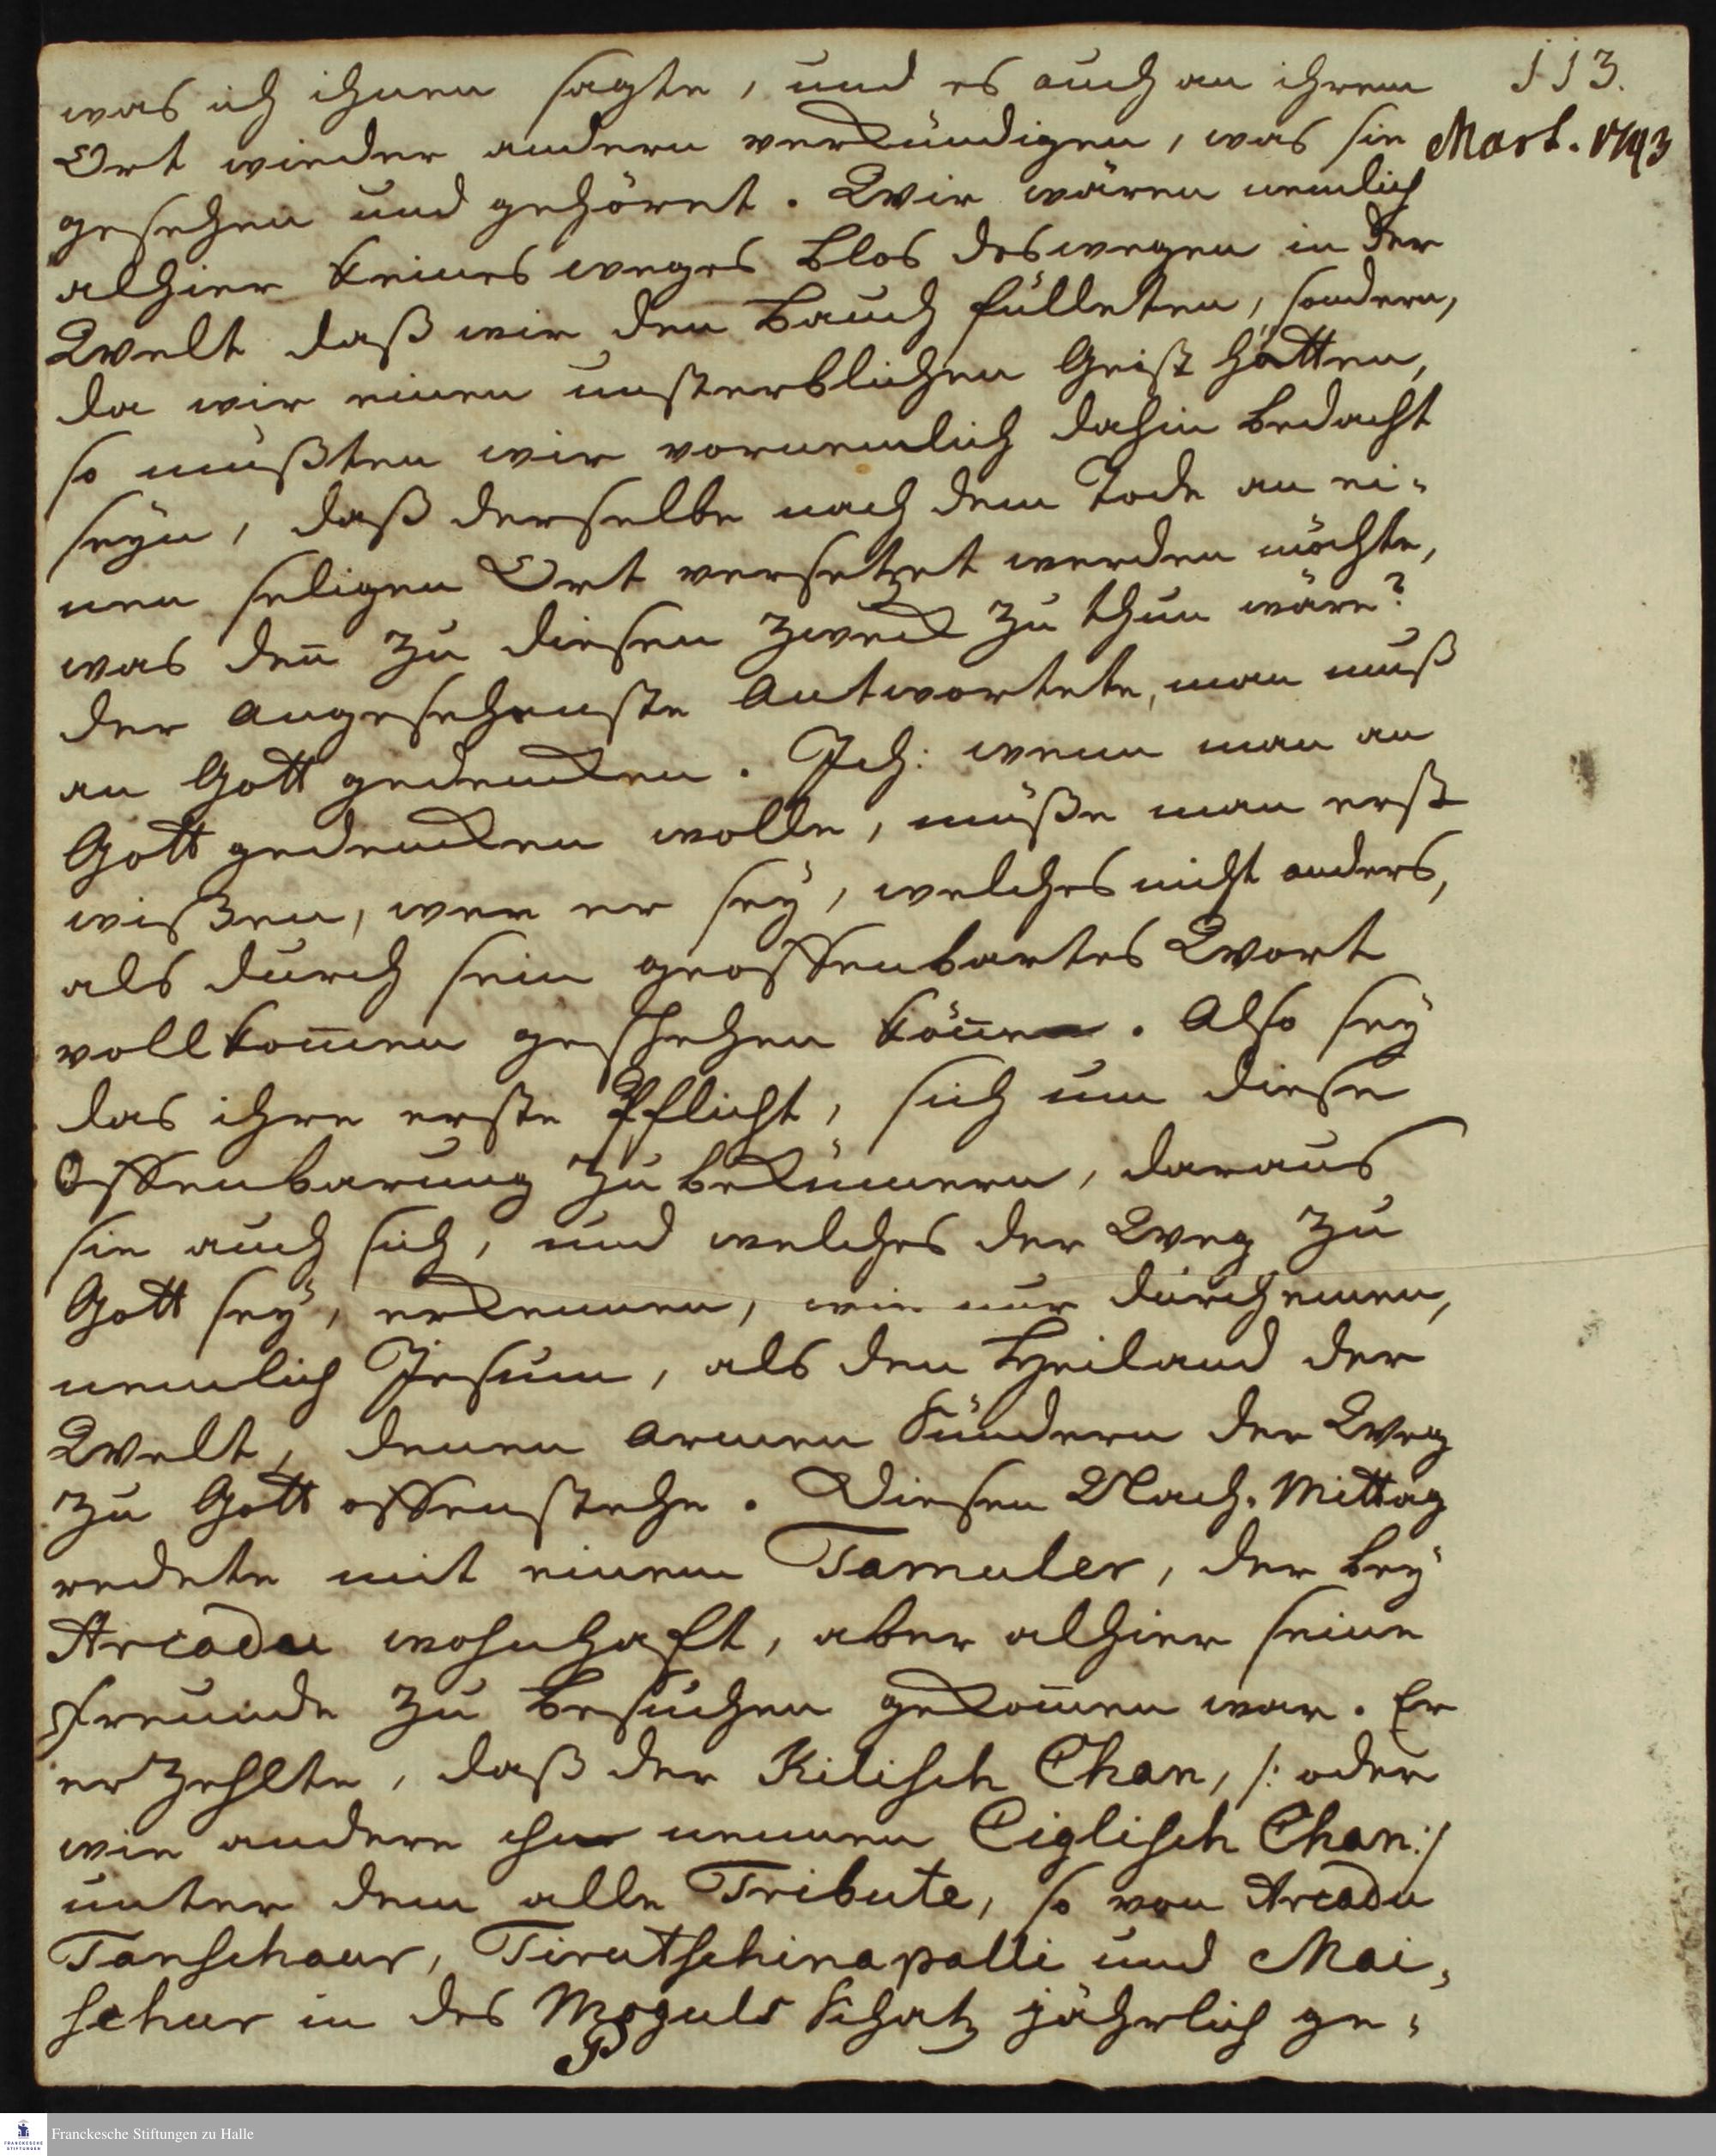 113.
was ich ihnen sagte, und es auch an ihrem
Mart. 1793
Ort wieder andern verkündigen, was sie
gesehen und gehöret. Wir wären nemlich
alhier keines weges blos deswegen in der
Welt daß wir den Bauch fülleten, sondern,
da wir einen unsterblichen Geist hätten,
so müßten wir vornemlich dahin bedacht
seÿn, daß derselbe nach dem Tode an ei-
nen seligen Ort versetzet werden möchte,
was den̄ zu diesen Zweck zu thun wäre?
der Angesehenste Antwortete, man muß
an Gott gedencken. Ich: wenn man an
Gott gedencken wolle, müße man erst
wißen, wer er seÿ, welches nicht anders,
als durch sein geoffenbartes Wort
vollkom̄en geschehen kön̄e. Also seÿ
das ihre erste Pflicht, sich um diese
Offenbarung zu bekümern, daraus
sie auch sich, und welches der Weg zu
Gott seÿ, erkennen, wie nur durch einen,
nemlich Jesum, als den Heiland der
Welt, denen armen Sündern der Weg
zu Gott offenstehe. Diesen Nach-Mittag
redete mit einem Tamuler, der beÿ
Arcadu wohnhaft, aber alhier seine
Freunde zu besuchen gekom̄en war. Er
erzehlte, daß der Kilisch Chan, /: oder
wie andere ihn nennen Ciglisch Chan :/
unter dem alle Tribute, so von Arcadu
Tanschaur, Tirutschinapalli und Mai-
schur in des Moguls Schatz jährlich ge-
P
Franckesche Stiftungen zu Halle
FRANCKESCHE STIFTUNGEN